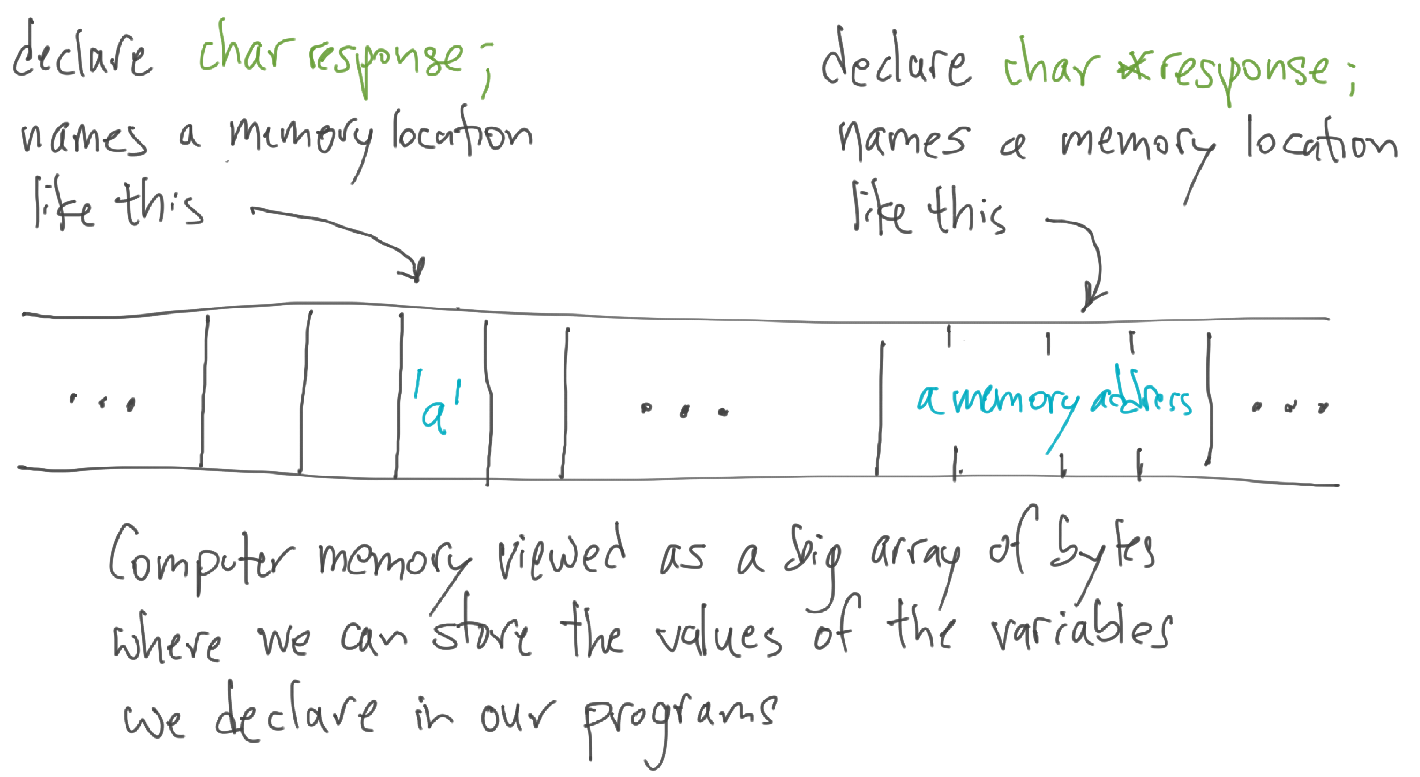 declare char response;
names a memory location
like this
declare char *response;
names a memory location
like this
...
'a'
...
a memory address
...
Computer memory viewed as a big array of bytes
where we can store the values of the variables
we declare in our programs